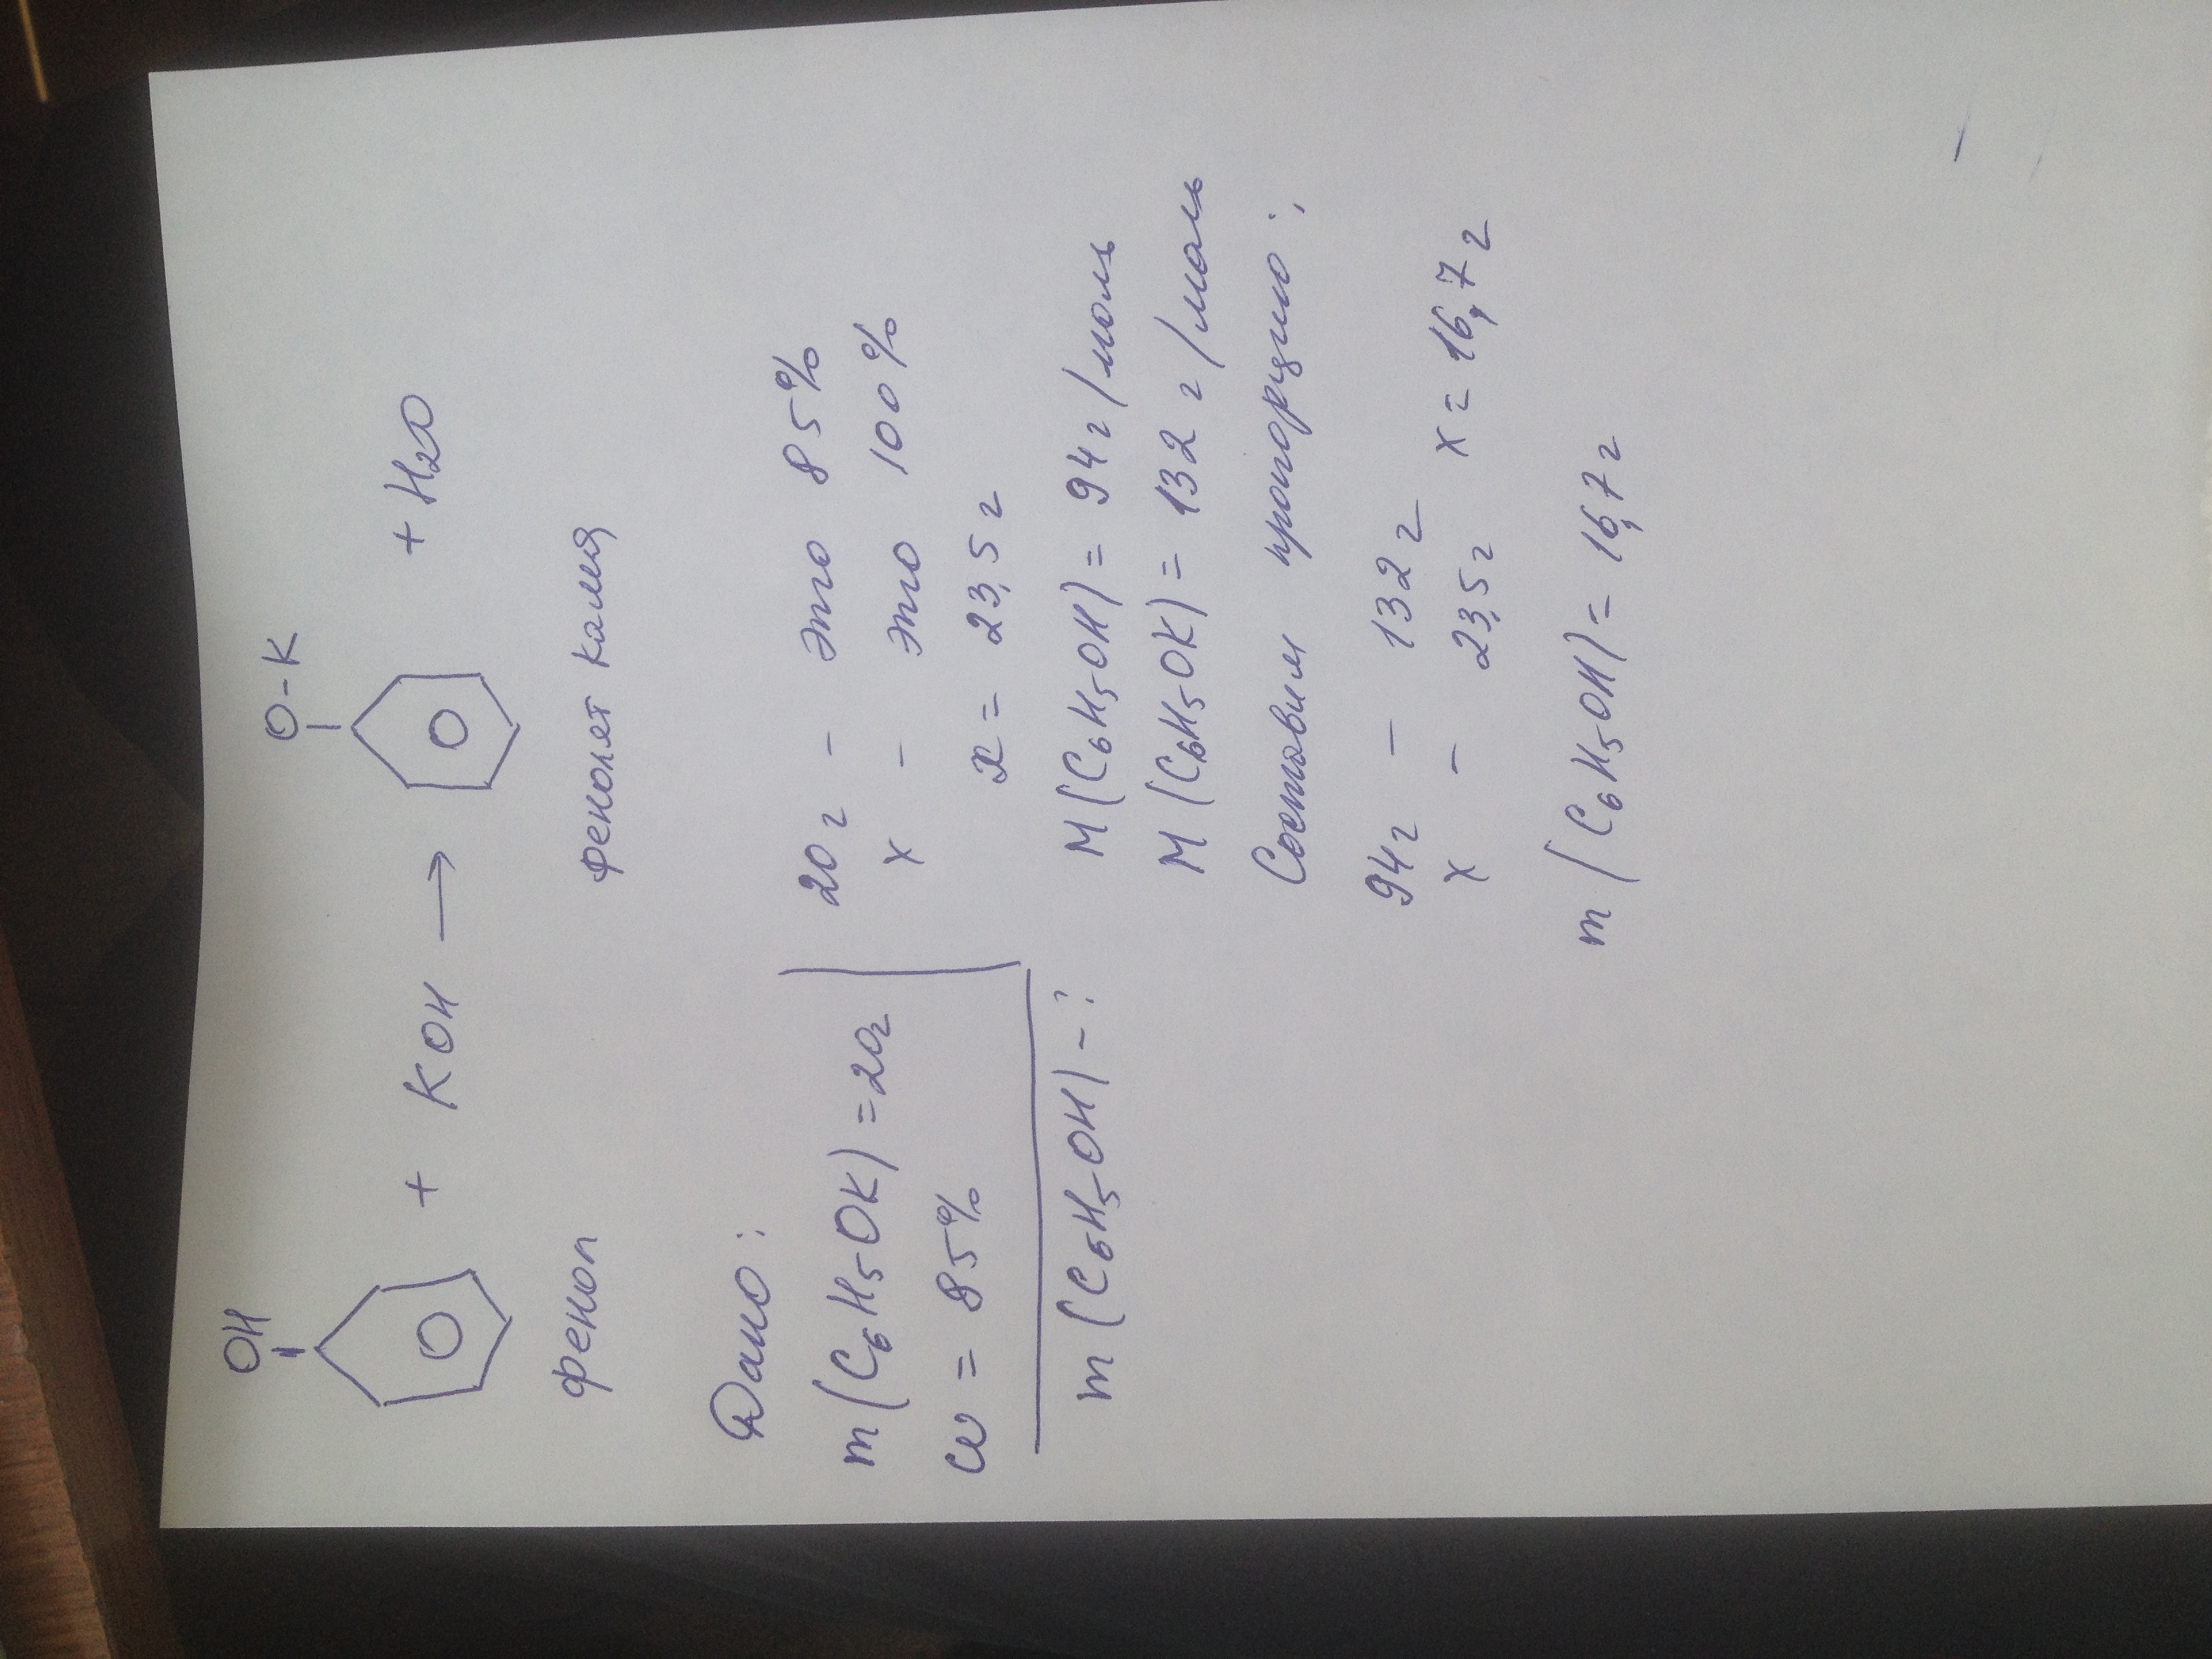 OH O-K
+ KOH → + H2O
фенол фенолят калия
Дано:
m(C6H5OK)=20г
ω = 85%
m(C6H5OH)-?
20г - это 85%
x - это 100%
x = 23,5г
M(C6H5OH)=94г/моль
M(C6H5OK)=132г/моль
Составим пропорцию:
94г - 132г
x - 23,5г x=16,7г
m(C6H5OH)=16,7г